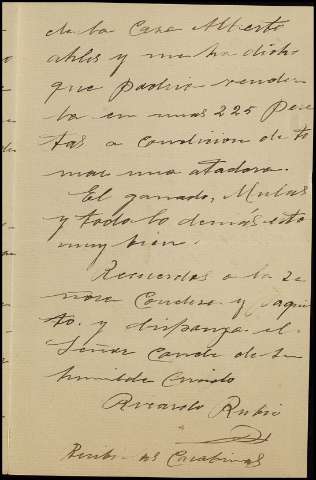 de la Casa Alberto
ahles y me ha dicho
que podria vender
la en unas 225 pese
tas a condicion de to
mar una atadora.
El ganado, Mulas
y todo lo demas esta
muy bien.
Recuerdos a la Se
ñora Condesa y
to. y disponga el
Señor Conde de su
humilde Criado
Ricardo Rubio
Carabinas